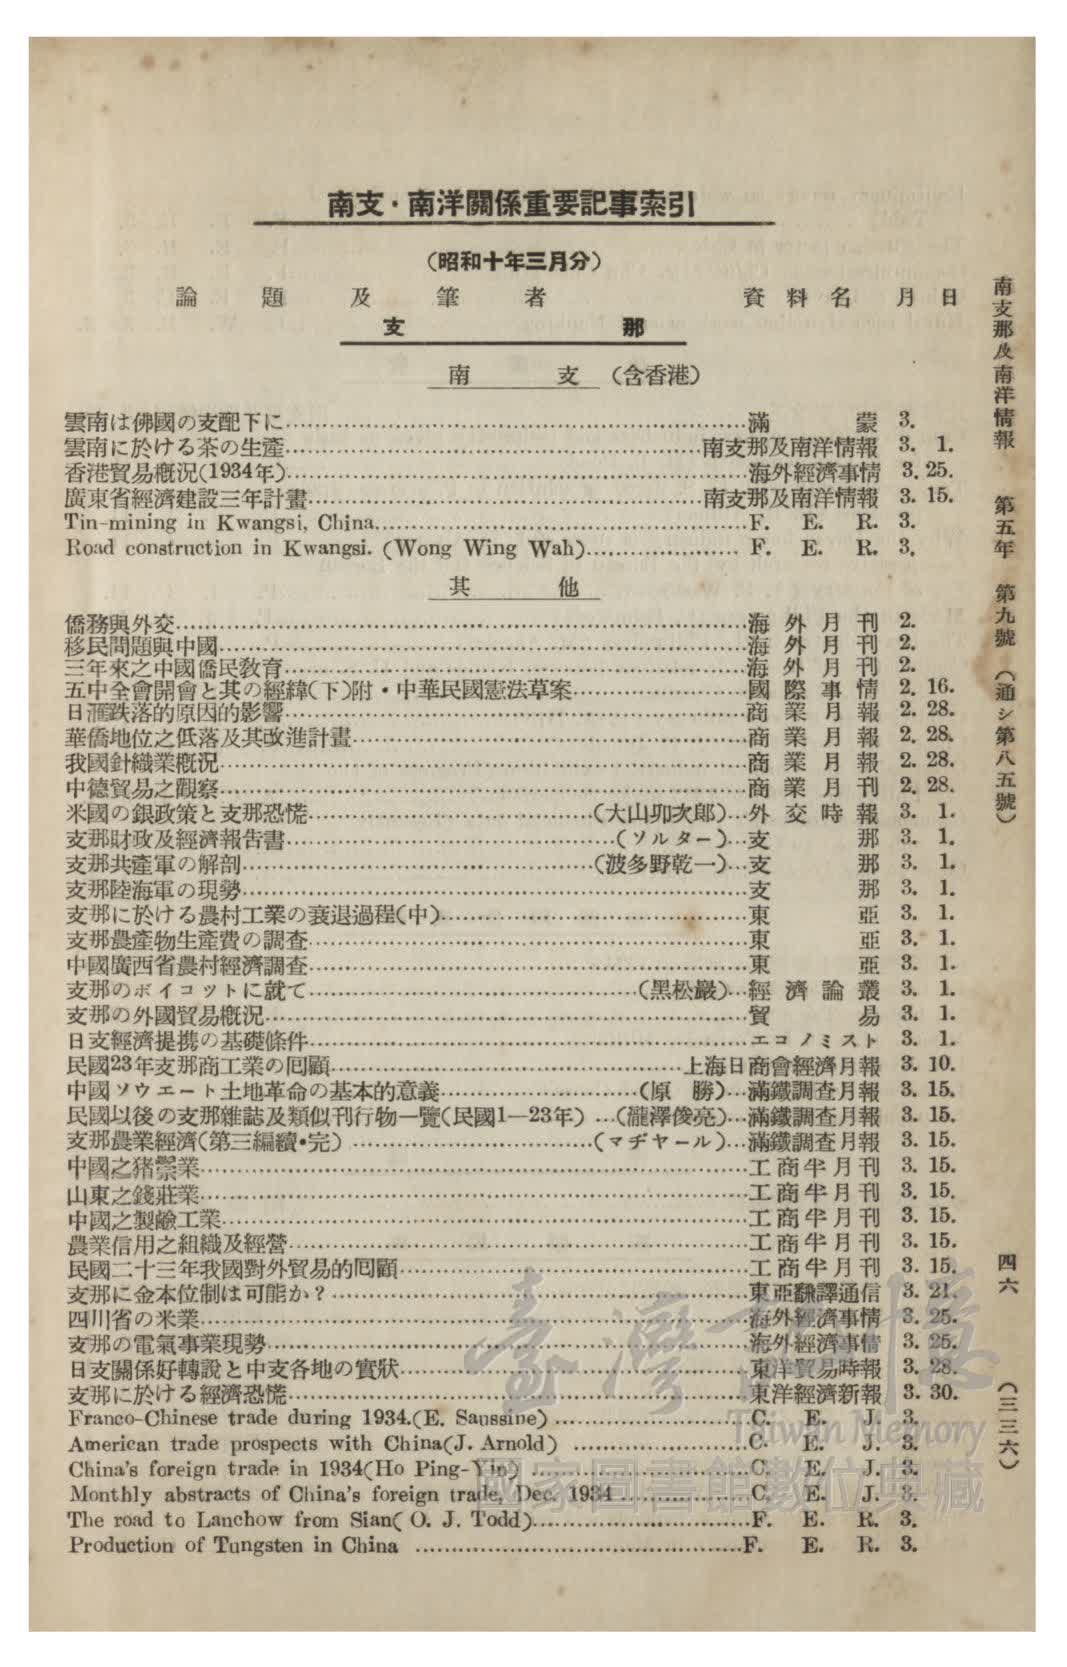 南支・南洋關係重要記事索引
(昭和十年三月分)
論題及筆者 資料名 月 日
支那
南支(含香港)
雲南は佛國の支配下に……滿蒙 3.
雲南に於ける茶の生產……南支那及南洋情報 3. 1.
香港貿易概況(1934年)……海外經濟事情 3. 25.
廣東省經濟建設三年計畫……南支那及南洋情報 3. 15.
Tin-mining in Kwangsi, China……F. E. R. 3.
Road construction in Kwangsi. (Wong Wing Wah)……F. E. R. 3.
其他
僑務與外交……海外月刊 2.
移民問題與中國……海外月刊 2.
三年來之中國僑民敎育……海外月刊 2.
五中全會開會と其の經緯(下)附・中華民國憲法草案……國際事情 2. 16.
日滙跌落的原因的影響……商業月報 2. 28.
華僑地位之低落及其改進計畫……商業月報 2. 28.
我國針織業概況……商業月報 2. 28.
中德貿易之觀察……商業月刊 2. 28.
米國の銀政策と支那恐慌……(大山卯次郎)…外交時報 3. 1.
支那財政及經濟報告書……(ソルター)…支那 3. 1.
支那共產軍の解剖……(波多野乾一)…支那 3. 1.
支那陸海軍の現勢……支那 3. 1.
支那に於ける農村工業の衰退過程(中)……東亞 3. 1.
支那農產物生產費の調査……東亞 3. 1.
中國廣西省農村經濟調査……東亞 3. 1.
支那のボイコットに就て……(黑松巖)…經濟論叢 3. 1.
支那の外國貿易概況……貿易 3. 1.
日支經濟提携の基礎條件……エコノミスト 3. 1.
民國23年支那商工業の囘顧……上海日商會經濟月報 3. 10.
中國ソウエート土地革命の基本的意義……(原勝)…滿鐵調査月報 3. 15.
民國以後の支那雜誌及類似刊行物一覽(民國1—23年)…(瀧澤俊亮)…滿鐵調査月報 3. 15.
支那農業經濟(第三編續・完)……(マヂヤール)…滿鐵調査月報 3. 15.
中國之猪鬃業……工商半月刊 3. 15.
山東之錢莊業……工商半月刊 3. 15.
中國之製鹼工業……工商半月刊 3. 15.
農業信用之組織及經營……工商半月刊 3. 15.
民國二十三年我國對外貿易的囘顧……工商半月刊 3. 15.
支那に金本位制は可能か?……東亞飜譯通信 3. 21.
四川省の米業……海外經濟事情 3. 25.
支那の電氣事業現勢……海外經濟事情 3. 25.
日支關係好轉說と中支各地の實狀……東洋貿易時報 3. 28.
支那に於ける經濟恐慌……東洋經濟新報 3. 30.
Franco-Chinese trade during 1934.(E. Saussine)……C. E. J. 3.
American trade prospects with China(J. Arnold)……C. E. J. 3.
China's foreign trade in 1934(Ho Ping-Yin)……C. E. J. 3.
Monthly abstracts of China's foreign trade, Dec. 1934……C. E. J. 3.
The road to Lanchow from Sian( O. J. Todd)……F. E. R. 3.
Production of Tungsten in China……F. E. R. 3.
南支那及南洋情報 第五年 第九號 (通シ第八五號) 四六 (三三六)
臺灣記憶
Taiwan Memory
國家圖書館數位典藏